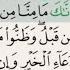 نَّٰكَ مَا مِنَّا مِن
ن قَبْلُ ۖ وَظَنُّوا۟ مَا
عَآءِ ٱلْخَيْرِ وَإِن